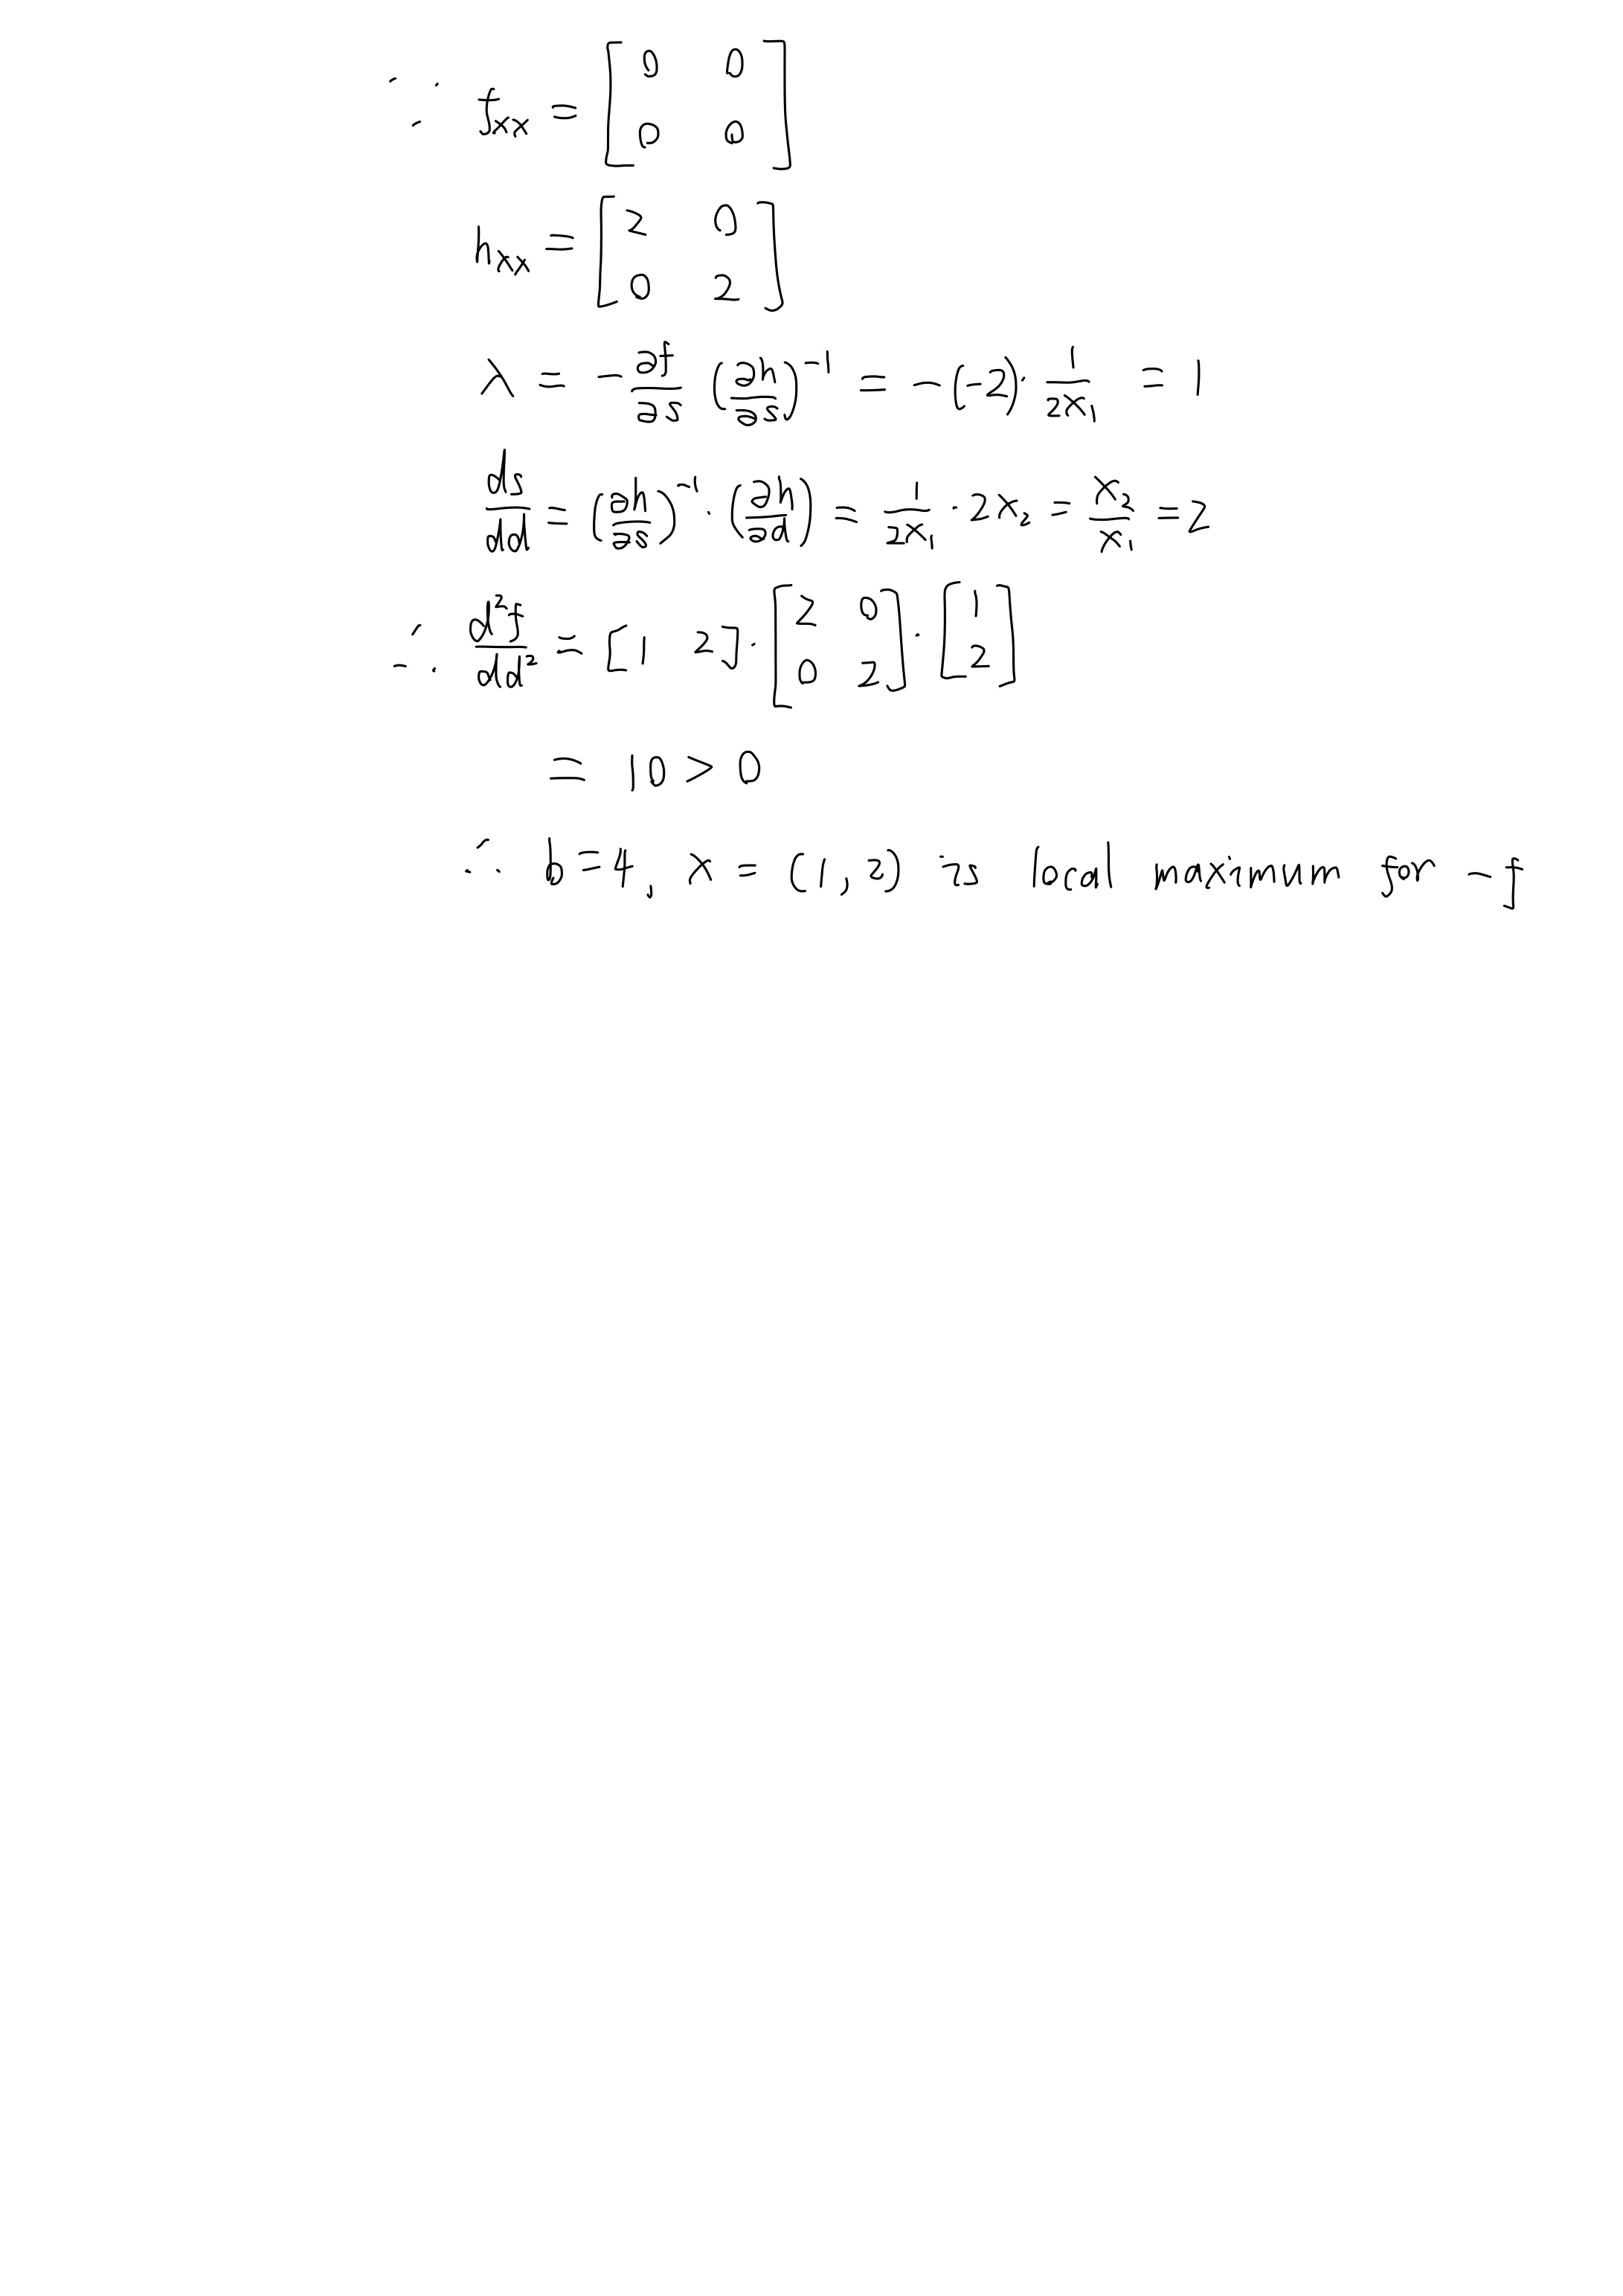 ∵ f_xx = [0 0; 0 0]
h_xx = [2 0; 0 2]
λ = -∂f/∂s (∂h/∂s)^-1 = -(-2)·1/(2x_1) = 1
ds/dd = (∂h/∂s)^-1·(∂h/∂d) = 1/(2x_1)·2x_2 = x_2/x_1 = 2
∴ d²f/dd² = [1 2]·[2 0; 0 2]·[1; 2]
= 10 > 0
∴ b=4, x = (1, 2) is local maximum for -f